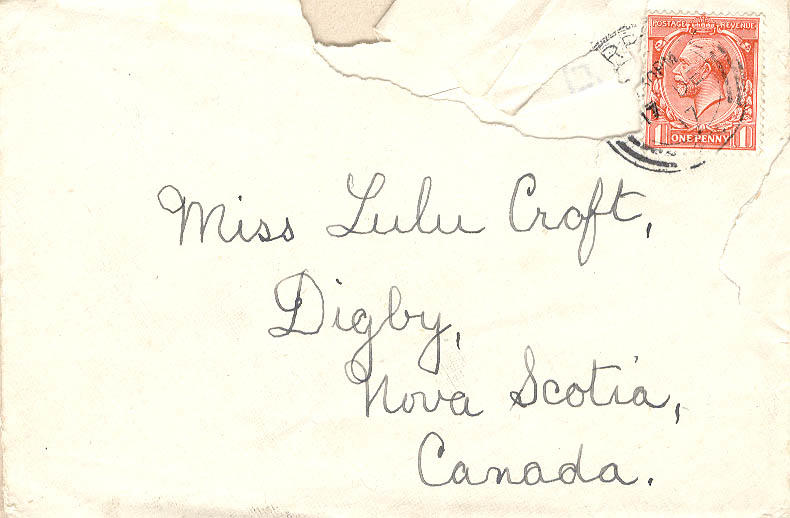 POSTAGE REVENUE
17 DE
1 ONE PENNY 1
Miss Lulu Croft,
Digby,
Nova Scotia,
Canada.